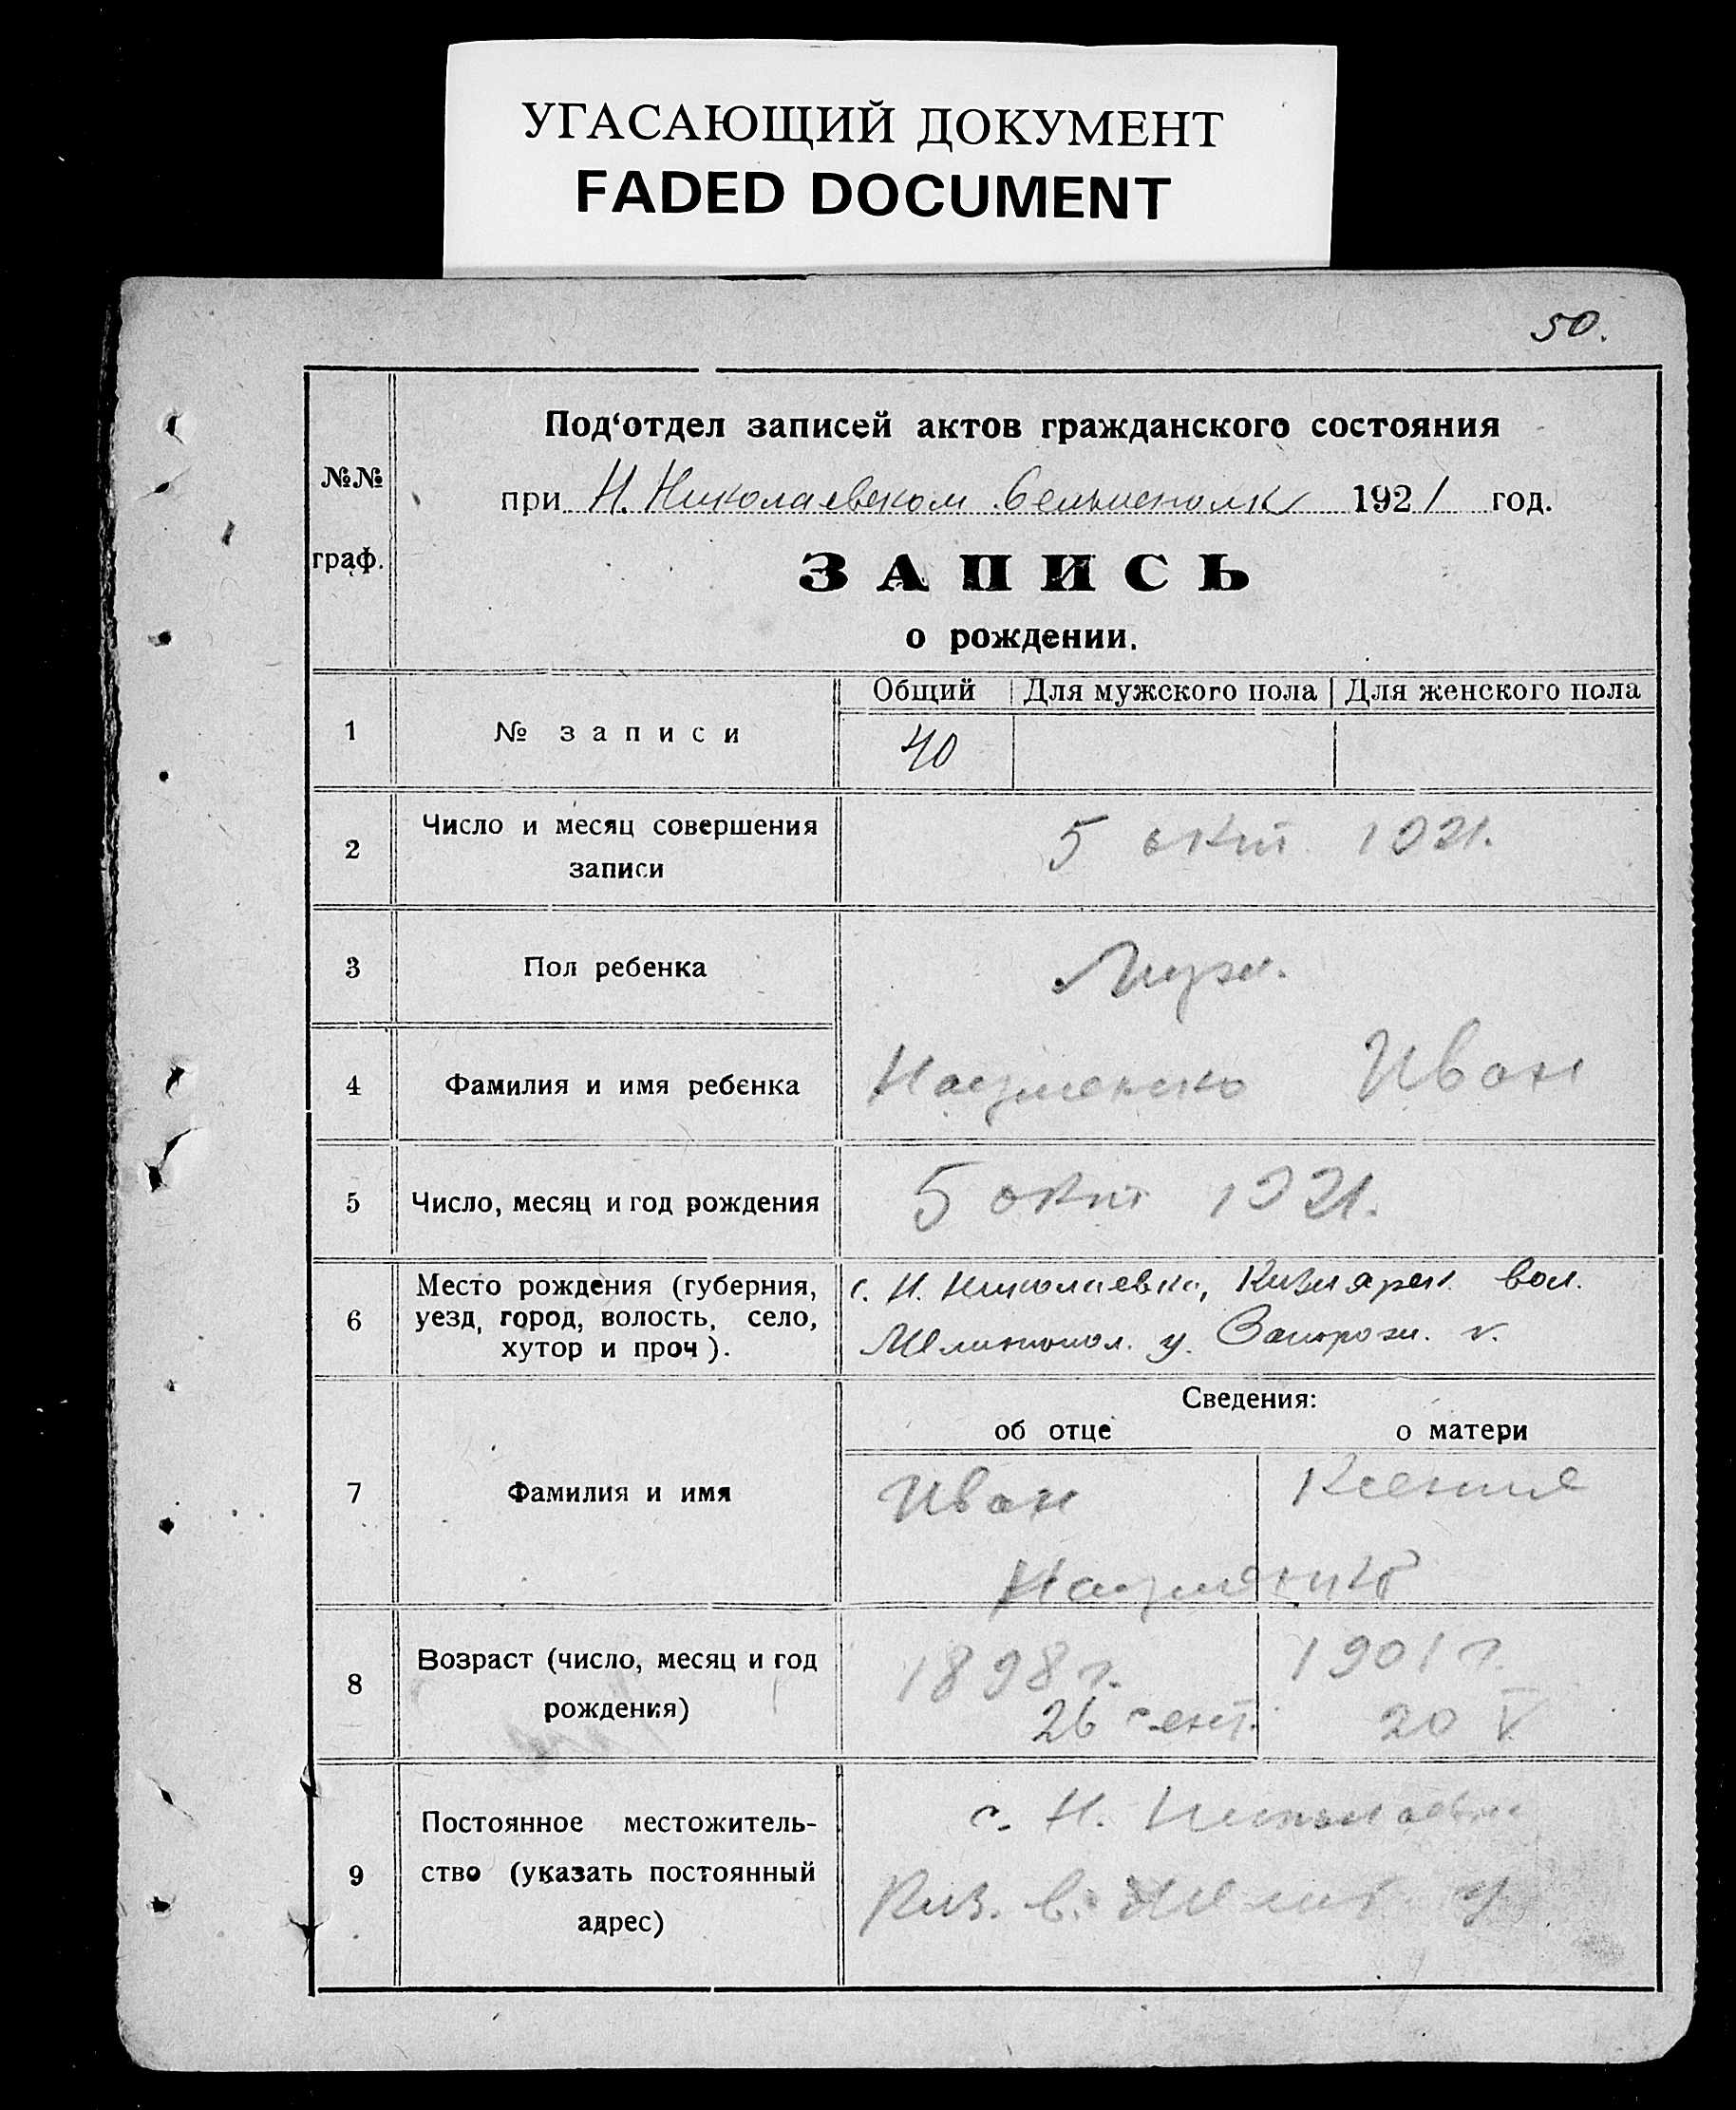 УГАСАЮЩИЙ ДОКУМЕНТ
FADED DOCUMENT
50.
№№
граф.
Под‘отдел записей актов гражданского состояния
при Н. Николаевском 1921 год.
ЗАПИСЬ
о рождении.
Общий Для мужского пола Для женского пола
1 № записи 40
2 Число и месяц совершения
записи
5 окт. 1921.
3 Пол ребенка Муж.
4 Фамилия и имя ребенка Науменко Иван
5 Число, месяц и год рождения 5 окт 1921.
6 Место рождения (губерния,
уезд, город, волость, село,
хутор и проч).
с. Н. Николаевка, Кизиярск. вол.
Мелитопол. у. Запорож. г.
Сведения:
об отце о матери
7 Фамилия и имя
Иван Ксения
Науменко
8 Возраст (число, месяц и год
рождения)
1898 г. 1901 г.
26 сент. 20 V
9 Постоянное местожитель-
ство (указать постоянный
адрес)
с. Н. Николаевка
Киз. в. Мелит. у